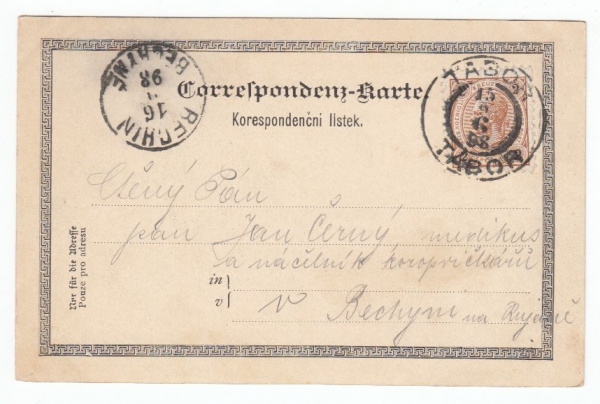 BECHYNĚ
16
98
BECHIN
TÁBOR
15
98
TABOR
Correspondenz-Karte
Korespondenční lístek.
Ctěný Pán
pan Jan Černý medikus
a náčelník
in
v
v Bechyni na
Nur für die Adresse
Pouze pro adresu